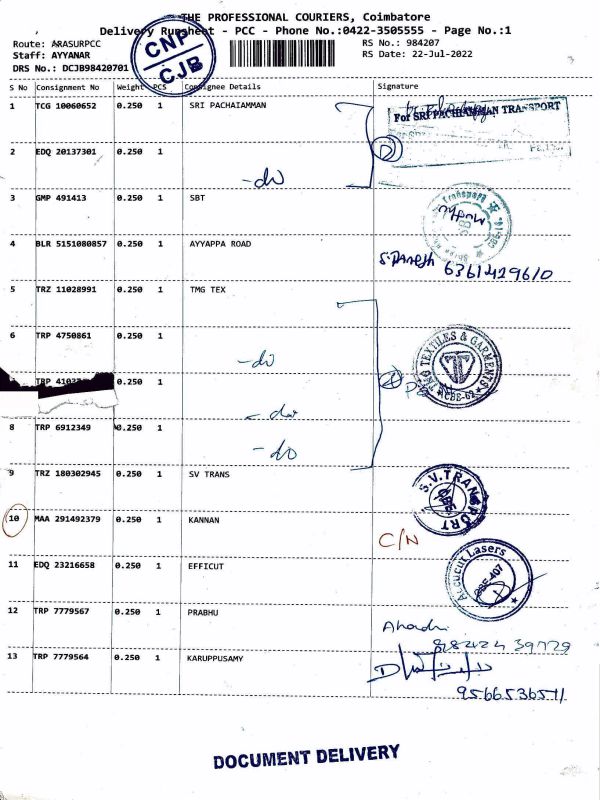 THE PROFESSIONAL COURIERS, Coimbatore
Delivery Runsheet - PCC - Phone No.:0422-3505555 - Page No.:1
Route: ARASURPCC
RS No.: 984207
Staff: AYYANAR
RS Date: 22-Jul-2022
DRS No.: DCJB98420701
CNP
CJB
S No Consignment No Weight PCS Consignee Details Signature
1 TCG 10060652 0.250 1 SRI PACHAIAMMAN
For SRI PACHIAMMAN TRANSPORT
2 EDQ 20137301 0.250 1
-do
3 GMP 491413 0.250 1 SBT
4 BLR 5151080857 0.250 1 AYYAPPA ROAD
6361429610
5 TRZ 11028991 0.250 1 TMG TEX
6 TRP 4750861 0.250 1
-do
TMG TEXTILES & GARMENTS
CBE-62
TRP 0.250 1
-do
8 TRP 6912349 0.250 1
-do
9 TRZ 180302945 0.250 1 SV TRANS
S.V.TRANSPORT
10 MAA 291492379 0.250 1 KANNAN
C/N
11 EDQ 23216658 0.250 1 EFFICUT
Accucut Lasers
CBE-407
12 TRP 7779567 0.250 1 PRABHU
13 TRP 7779564 0.250 1 KARUPPUSAMY
DOCUMENT DELIVERY